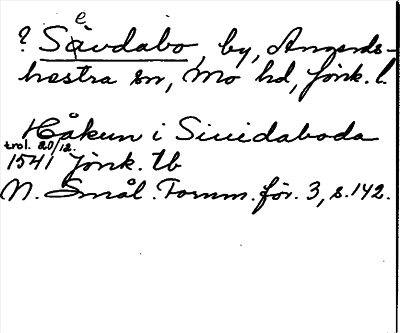 ? Sävdabo, by, Angerds-
hestra sn, Mo hd, Jönk. l.
Håkun i Siuidaboda
trol. 20/12.
1541 Jönk. tb
N. Smål. Fornm. för. 3, s. 142.